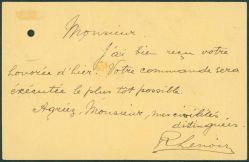 Monsieur.
J'ai bien reçu votre
honorée d'hier. Votre commande sera
éxécutée le plus tot possible.
Agréez, Monsieur, mes civilités
distinguées.
R Lenoir